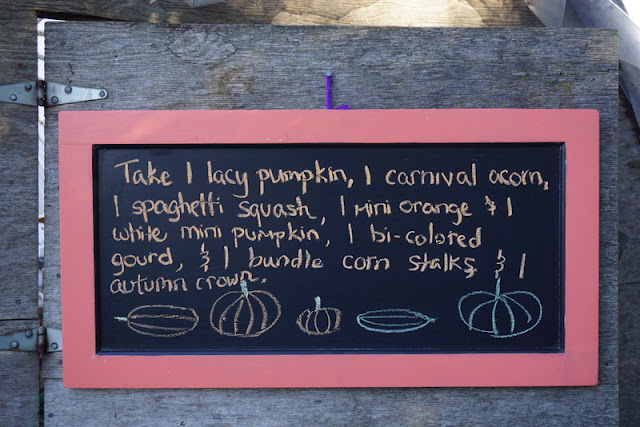 Take 1 lacy pumpkin, 1 carnival acorn,
1 spaghetti squash, 1 mini orange & 1
white mini pumpkin, 1 bi-colored
gourd, & 1 bundle corn stalks & 1
autumn crown.